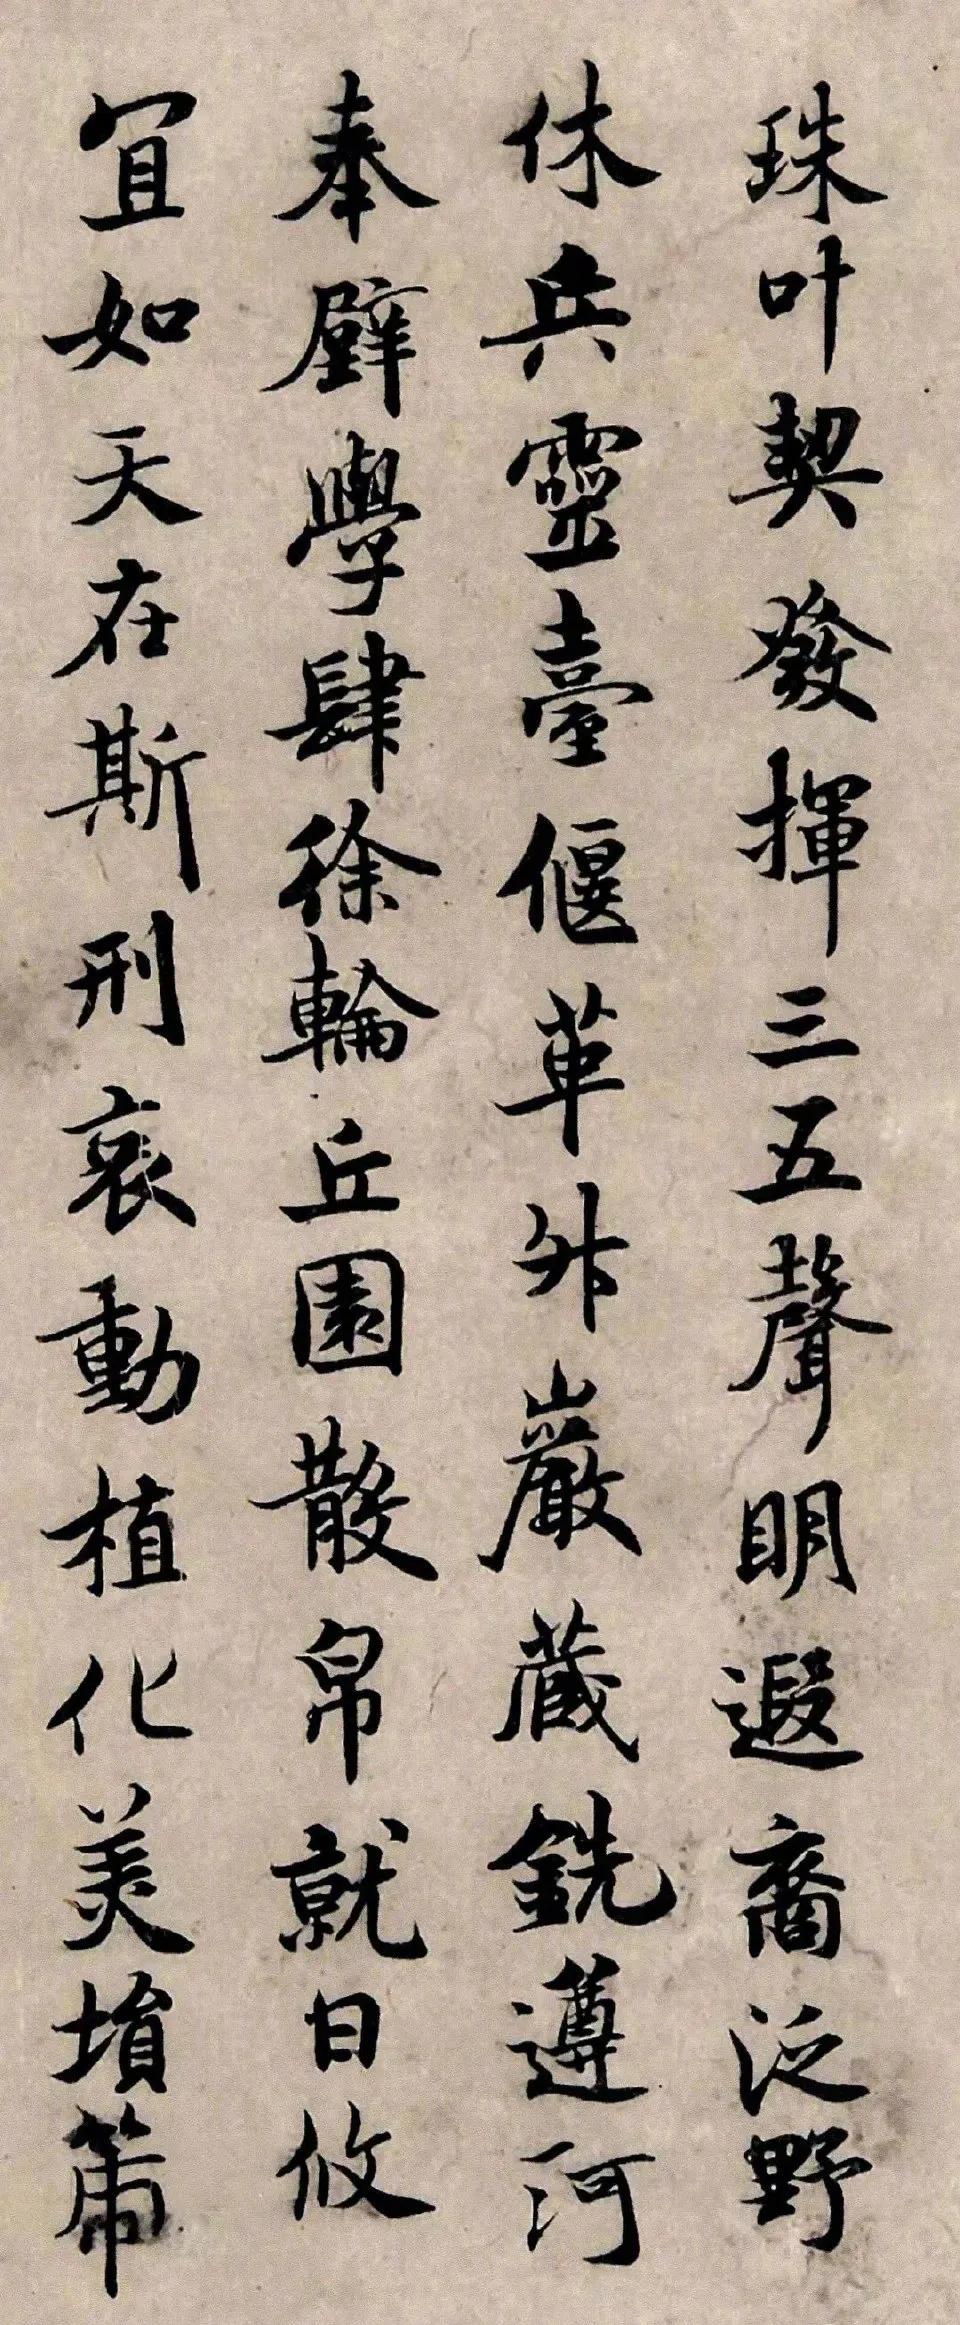 珠叶契發揮三五聲明遐裔泛野
休兵靈臺偃革升巖藏銑遵河
奉璧學肆徐輪丘園散帛就日攸
宜如天在斯刑哀動植化美塤篪